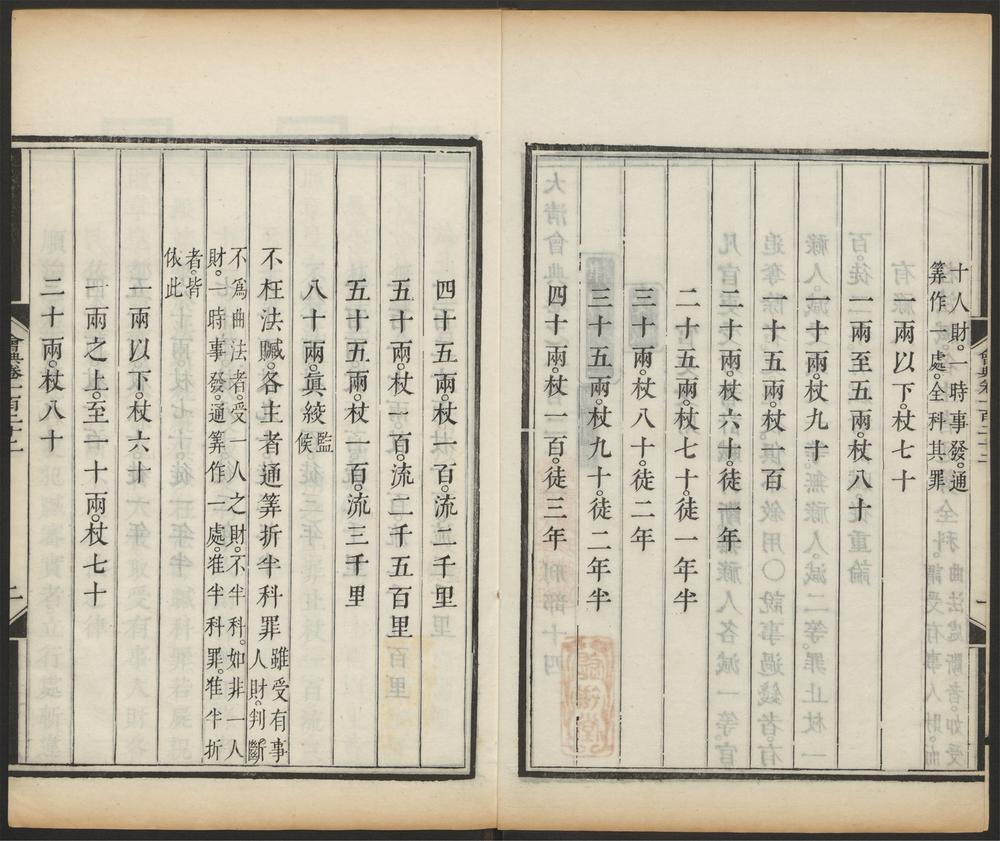 十人財。一時事發。通
筭作一處。全科其罪
一兩以下。杖七十
一兩至五兩。杖八十
一十兩。杖九十
一十五兩。杖一百
二十兩。杖六十。徒一年
二十五兩。杖七十。徒一年半
三十兩。杖八十。徒二年
三十五兩。杖九十。徒二年半
四十兩。杖一百。徒三年
四十五兩。杖一百。流二千里
五十兩。杖一百。流二千五百里
五十五兩。杖一百。流三千里
八十兩。眞絞監候
不枉法贓。各主者通筭折半科罪雖受有事
人財。判斷
不爲曲法者。受一人之財。不半科。如非一人
財。一時事發。通筭作一處。准半科罪。准半折
者。皆
依此
一兩以下。杖六十
一兩之上。至一十兩。杖七十
二十兩。杖八十